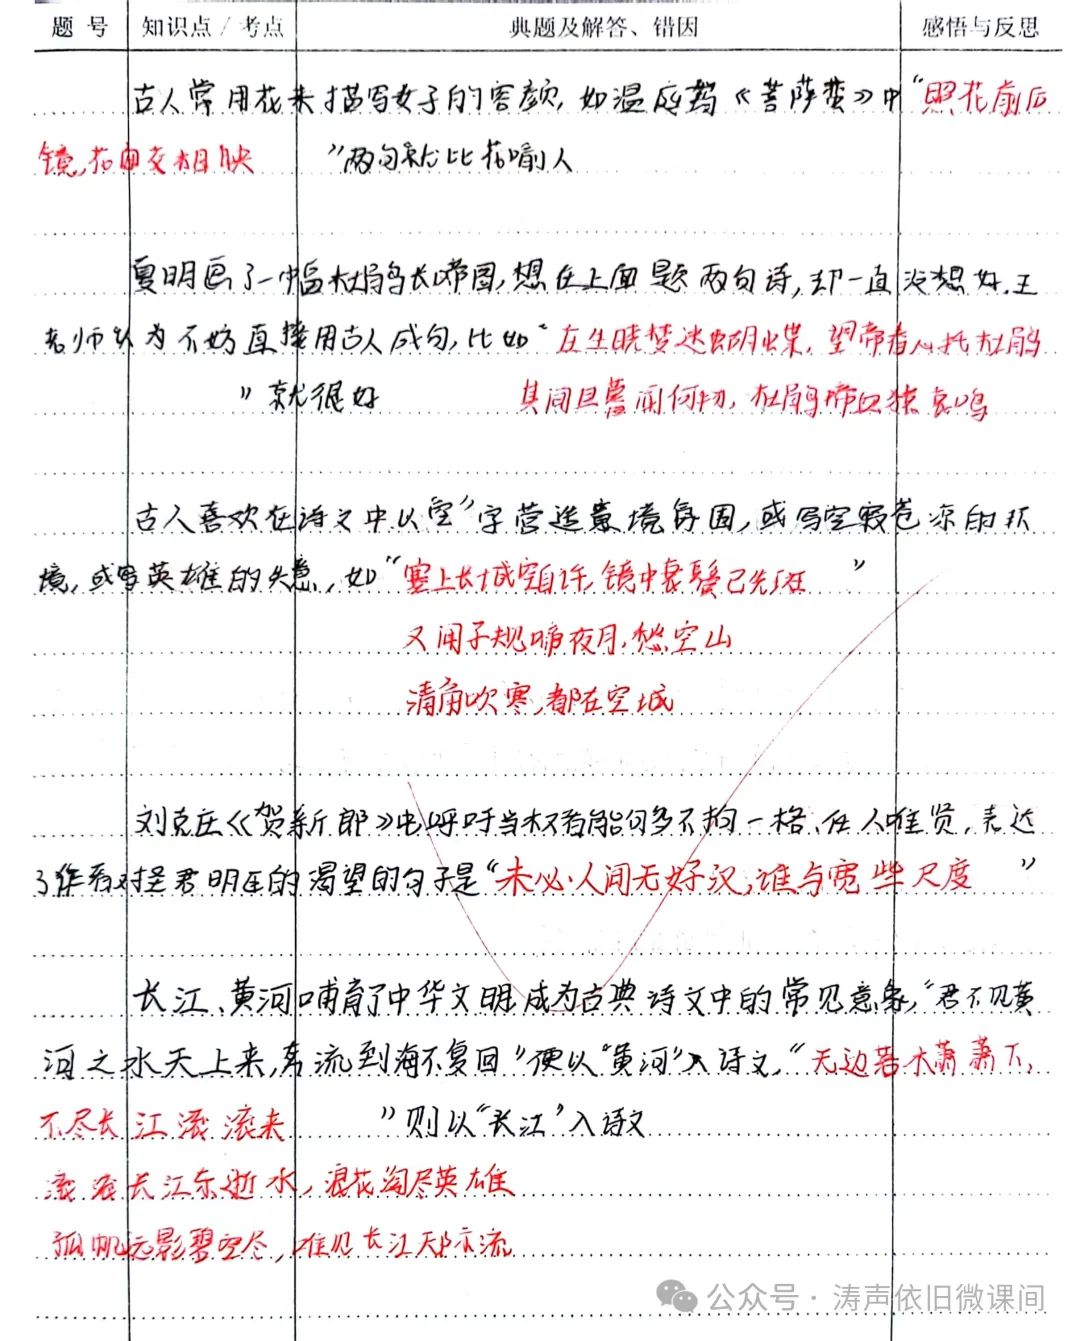 题 号 知识点 / 考点 典题及解答、错因 感悟与反思
古人常用花来描写女子的容颜，如温庭筠《菩萨蛮》中“照花前后
镜，花面交相映 ”两句就比花喻人
夏明画了一幅杜鹃鸟长啼图，想在上面题两句诗，却一直没想好，王
老师认为不妨直接用古人成句，比如“庄生晓梦迷蝴蝶，望帝春心托杜鹃
”就很好 其间旦暮闻何物，杜鹃啼血猿哀鸣
古人喜欢在诗文中以“空”字营造意境氛围，或写空寂苍凉的环
境，或写英雄的失意，如“塞上长城空自许，镜中衰鬓已先斑 ”
又闻子规啼夜月，愁空山
清角吹寒，都在空城
刘克庄《贺新郎》中呼吁当权者能够多不拘一格、任人唯贤，表达
了作者对圣君明臣的渴望的句子是“未必人间无好汉，谁与宽些尺度 ”
长江、黄河哺育了中华文明，成为古典诗文中的常见意象，“君不见黄
河之水天上来，奔流到海不复回”便以“黄河”入诗文，“无边落木萧萧下，
不尽长江滚滚来 ”则以“长江”入诗文
滚滚长江东逝水，浪花淘尽英雄
孤帆远影碧空尽，唯见长江天际流
公众号 · 涛声依旧微课间